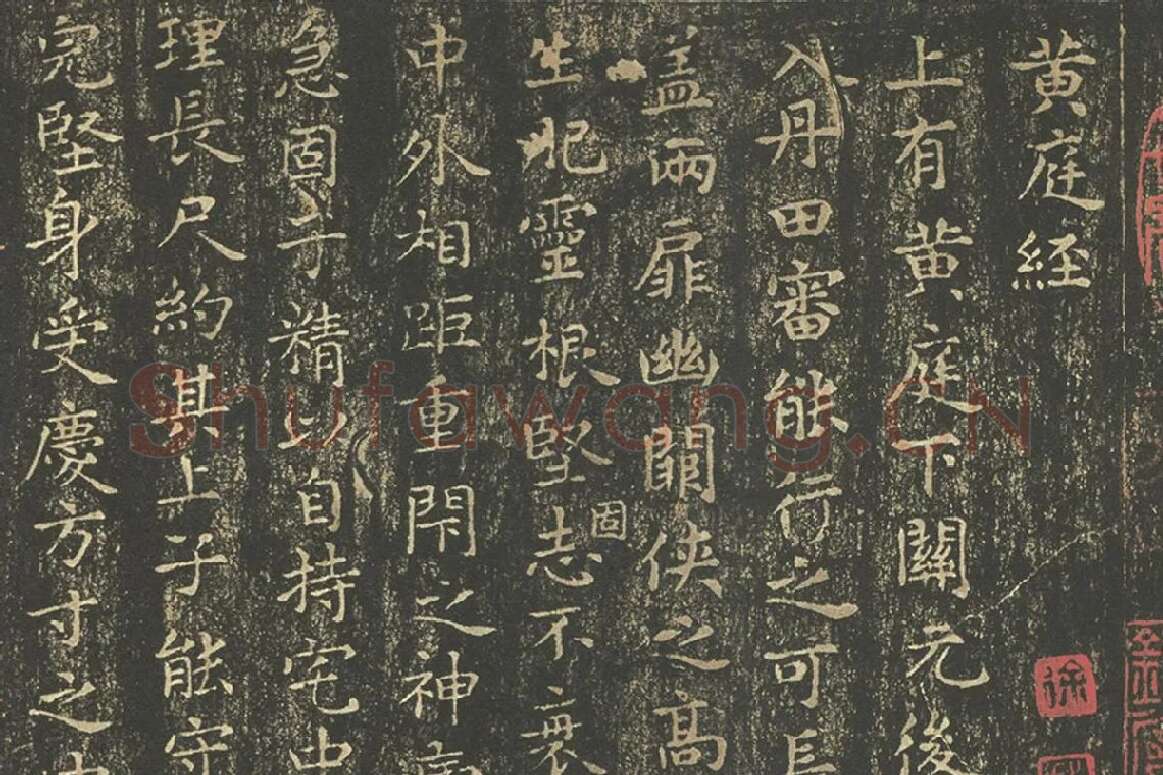 黄庭経
上有黄庭下關元後
入丹田審能行之可長
盖兩扉幽關侠之高
生門靈根堅固志不衰
中外相距重閇之神
急固子精以自持宅中
理長尺約其上子能守
完堅身受慶方寸之中
徐
Shufawang.CN